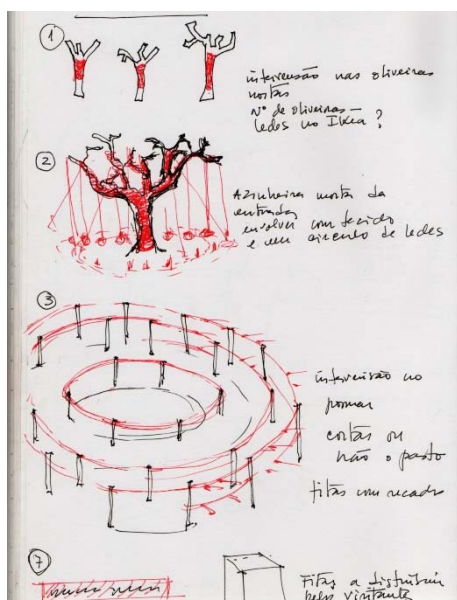 1
intervensão nas oliveiras
mortas
Nº de oliveiras –
ledes no Ikea ?
2
Azinheira morta da
entrada
envolver com tecido
e um circulo de ledes
3
intervensão no
pomar
cortar ou
não o pasto
fitas com recado
7
Fitas a distribuir
pelo visitante